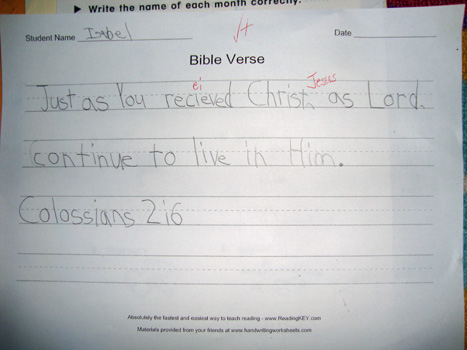 ▶ Write the name of each month correctly.
Student Name Isabel Date
Bible Verse
ei Jesus
Just as You recieved Christ, as Lord,
continue to live in Him.
Colossians 2:6
Absolutely the fastest and easiest way to teach reading - www.ReadingKEY.com
Materials provided from your friends at www.handwritingworksheets.com